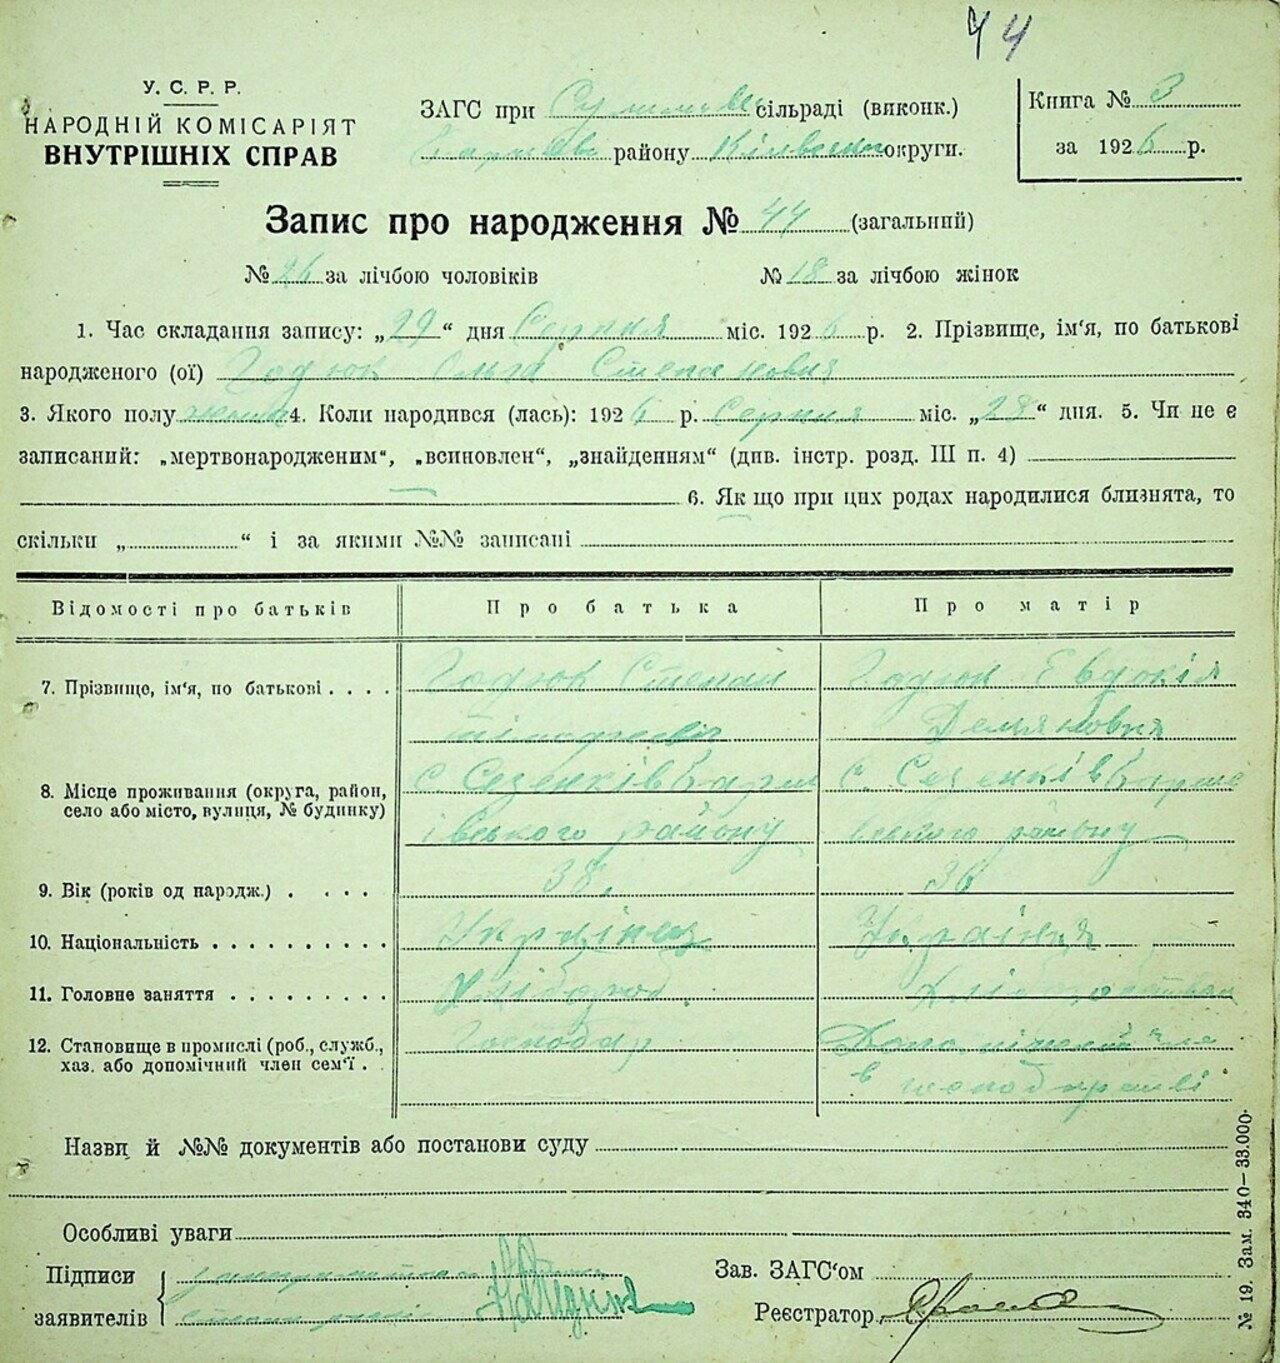 44
У. С. Р. Р.
НАРОДНІЙ КОМІСАРІЯТ
ВНУТРІШНІХ СПРАВ
ЗАГС при сільраді (виконк.)
району округи.
Книга № 3
за 1926 р.
Запис про народження № 44 (загальний)
№ 26 за лічбою чоловіків № 18 за лічбою жінок
1. Час складання запису: „29“ дня Серпня міс. 1926 р. 2. Прізвище, ім‘я, по батькові
народженого (ої) Годюк Ольга Степановна
3. Якого полу 4. Коли народився (лась): 1926 р. Серпня міс. „28“ дня. 5. Чи не є
записаний: „мертвонародженим“, „всиновлен“, „знайденням“ (див. інстр. розд. III п. 4)
6. Як що при цих родах народилися близнята, то
скільки „ “ і за якими №№ записані
Відомості про батьків Про батька Про матір
7. Прізвище, ім‘я, по батькові Годюк Степан Годюк Евдокія
Демяновня
8. Місце проживання (округа, район, с. Сезенків Бариш с. Сезенків Барише
село або місто, вулиця, № будинку) івського району вського району
9. Вік (років од народж.) 38. 36
10. Національність Українец Українка
11. Головне заняття Хлібороб.
12. Становище в промислі (роб., служб., Господар
хаз. або допомічний член сем‘ї
Назви й №№ документів або постанови суду
Особливі уваги
Підписи
заявителів
Зав. ЗАГС‘ом
Реєстратор
№ 19. Зам. 340–33.000.